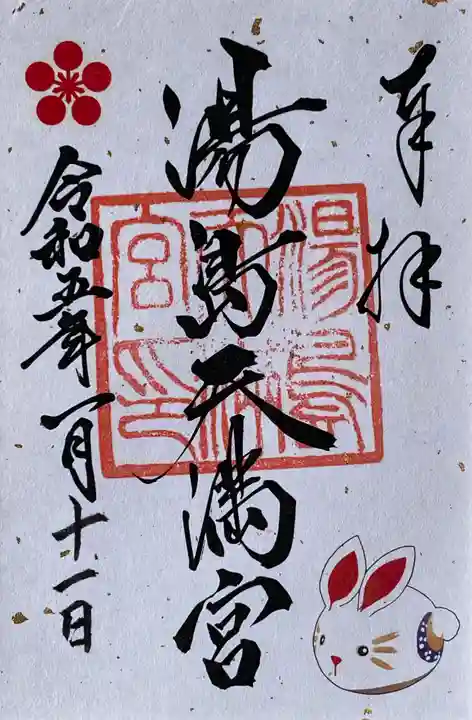 奉拝
湯島天満宮
令和五年一月十一日
湯島
天神
宮印